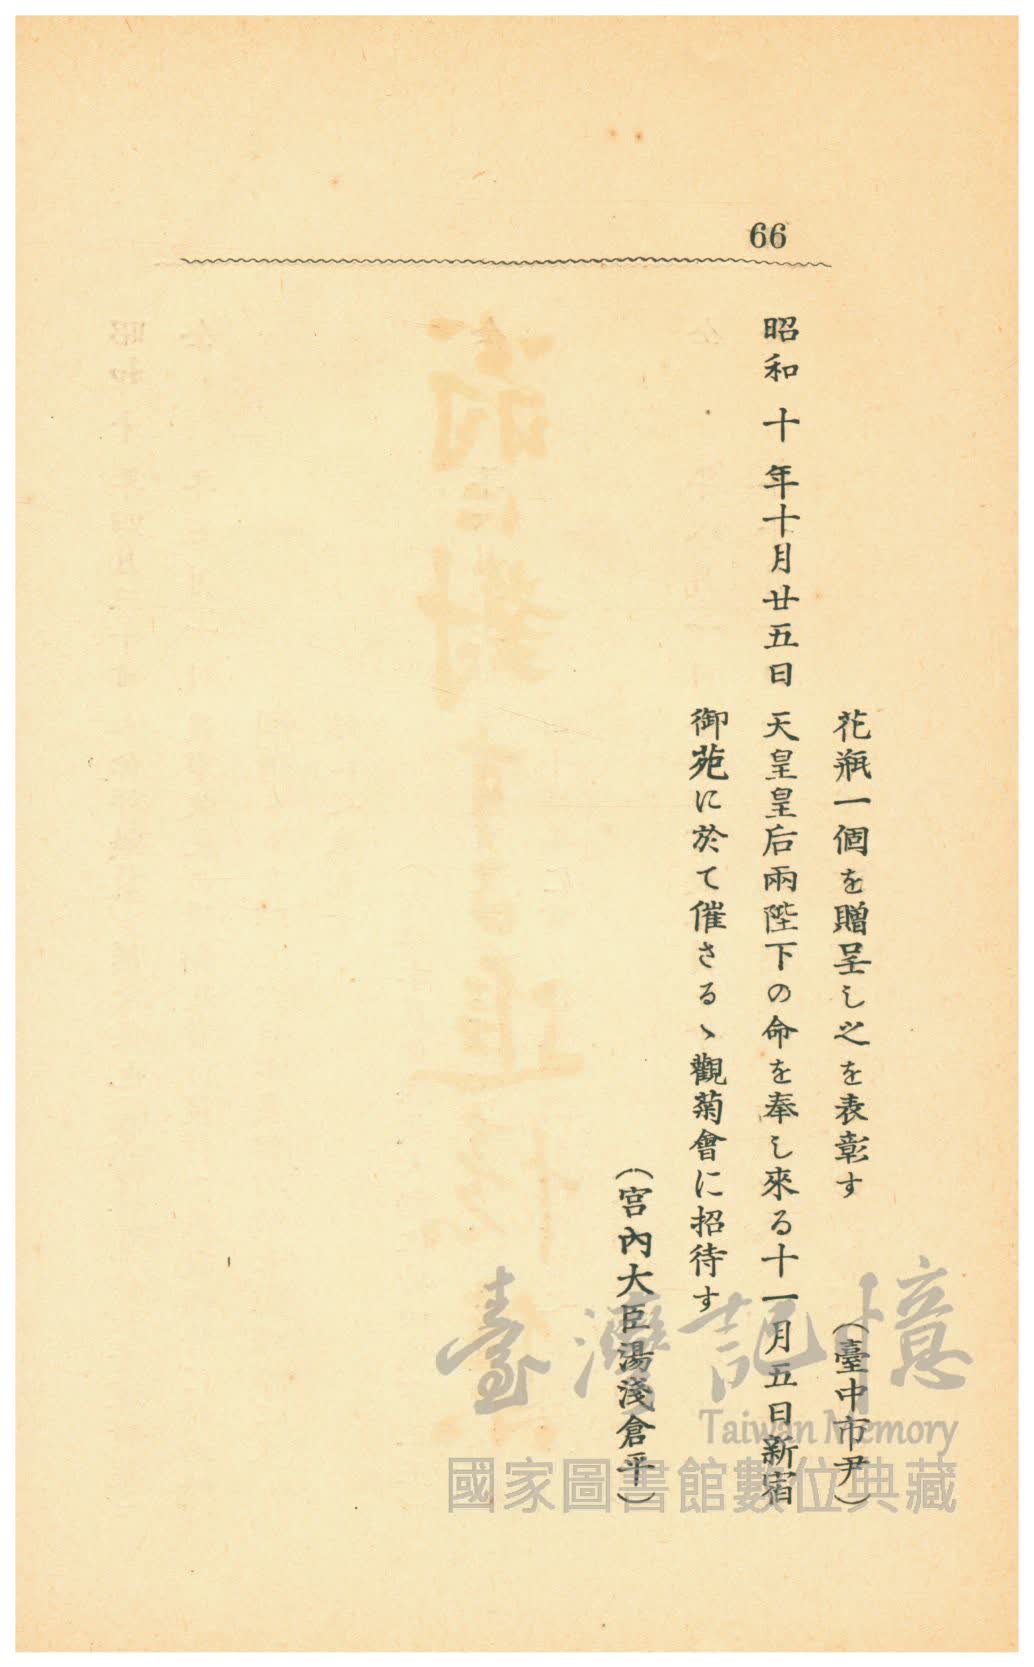 66
花瓶一個を贈呈し之を表彰す　（臺中市尹）
昭和十年十月廿五日　天皇皇后兩陛下の命を奉し來る十一月五日新宿
御苑に於て催さるゝ觀菊會に招待す
（宮內大臣湯淺倉平）
臺灣記憶
Taiwan Memory
國家圖書館數位典藏